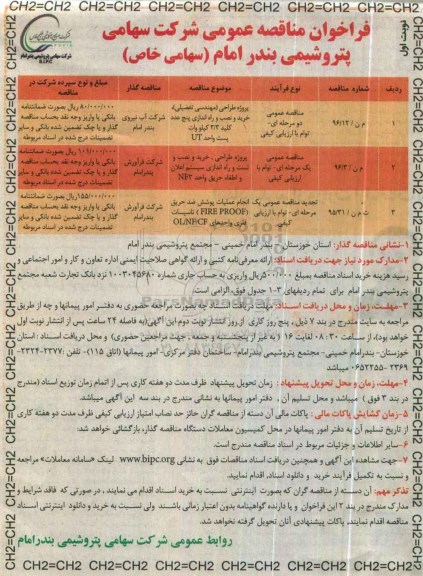 نوبت اول
فراخوان مناقصه عمومی شرکت سهامی
پتروشیمی بندر امام (سهامی خاص)
شرکت سهامی پتروشیمی بندر امام
B.I.P.C
ردیف
شماره مناقصه
نوع فرآیند
موضوع مناقصه
مناقصه گذار
مبلغ و نوع سپرده شرکت در مناقصه
۱
م ن / ۹۶/۱۲
مناقصه عمومی دو مرحله ای- توام با ارزیابی کیفی
پروژه طراحی (مهندسی تفصیلی)، خرید و نصب و راه اندازی پنج عدد کلید ۳/۳ کیلو وات پست واحد UT
شرکت آب نیروی بندر امام
۸۱۰/۰۰۰/۰۰۰ ریال بصورت ضمانتنامه بانکی یا واریز وجه نقد بحساب مناقصه گذار و یا چک تضمین شده بانکی و سایر موارد قانونی درج شده در اسناد مربوطه
۲
م ن / ۹۶/۳
مناقصه عمومی یک مرحله ای- توام با ارزیابی کیفی
پروژه طراحی، خرید و نصب و تست و راه اندازی سیستم اعلان و اطفاء حریق واحد NF۲
شرکت فرآورش بندر امام
۱۰۱/۰۰۰/۰۰۰ ریال بصورت ضمانتنامه بانکی یا واریز وجه نقد بحساب مناقصه گذار و یا چک تضمین شده بانکی و سایر موارد قانونی درج شده در اسناد مربوطه
۳
ت م ن / ۹۵/۳۱
تجدید مناقصه عمومی یک مرحله ای- توام با ارزیابی کیفی
انجام عملیات پوشش ضد حریق (FIRE PROOF) تاسیسات فلزی واحدهای OL/NF/CF
شرکت فرآورش بندر امام
۱۵۵/۰۰۰/۰۰۰ ریال بصورت ضمانتنامه بانکی یا واریز وجه نقد بحساب مناقصه گذار و یا چک تضمین شده بانکی و سایر موارد قانونی درج شده در اسناد مربوطه
۱-نشانی مناقصه گذار: استان خوزستان - بندر امام خمینی - مجتمع پتروشیمی بندر امام
۲-مدارک مورد نیاز جهت دریافت اسناد: ارائه معرفی نامه کتبی و ارائه گواهی صلاحیت ایمنی اداره تعاون و کار و امور اجتماعی و
رسید هزینه خرید اسناد مناقصه بمبلغ ۵۰۰/۰۰۰ ریال واریزی به حساب جاری شماره ۱۰۰۳۰۴۵۶۸۰ نزد بانک تجارت شعبه مجتمع
پتروشیمی بندر امام برای تمام ردیفهای ۳-۱ جدول فوق، الزامی است.
۳-مهلت، زمان و محل دریافت اسناد: مهلت دریافت اسناد چه بصورت مراجعه حضوری به دفتر امور پیمانها و چه از طریق
مراجعه به سایت مندرج در بند ۷ ذیل، پنج روز کاری از روز انتشار نوبت دوم این آگهی(به فاصله ۲۴ ساعت پس از انتشار نوبت اول
خواهد بود)، از ساعت ۰۸:۳۰ لغایت ۱۶ ( به غیر از پنجشنبه و جمعه - جهت مراجعین حضوری) و محل دریافت اسناد: استان
خوزستان- بندرامام خمینی- مجتمع پتروشیمی بندرامام- ساختمان دفتر مرکزی- امور پیمانها (اتاق ۱۱۵)- تلفن ۲۳۷۷-۲۲۲۴-
۲۳۶۹-۰۶۵۲۲۵۵ میباشد.
۴-مهلت، زمان و محل تحویل پیشنهاد: زمان تحویل پیشنهاد ظرف مدت دو هفته کاری پس از اتمام زمان توزیع اسناد (مندرج
در بند ۳ فوق) میباشد و محل تسلیم آن، دفتر امور پیمانها به نشانی مندرج در بند سه این آگهی میباشد.
۵-زمان گشایش پاکات مالی: پاکات مالی آن دسته از مناقصه گران حائز حد نصاب امتیاز ارزیابی کیفی ظرف مدت دو هفته کاری
از تاریخ تسلیم آن به دفتر امور پیمانها در محل کمیسیون معاملات دستگاه مناقصه گذار، بازگشائی خواهد شد.
۶-سایر اطلاعات و جزئیات مربوط در اسناد مناقصه مندرج است.
۷-جهت مشاهده این آگهی و همچنین دریافت اسناد مناقصات فوق به نشانی www.bipc.org لینک «سامانه معاملات» مراجعه
و نسبت به تکمیل فرآیند خرید و دانلود اسناد، اقدام نمایید.
تذکر مهم: آن دسته از مناقصه گران که بصورت اینترنتی نسبت به خرید اسناد اقدام می نمایند، در صورتی که فاقد شرایط و
مدارک مندرج در بند ۲ این فراخوان و یا دارنده گواهینامه بدون اعتبار زمانی باشند ولی نسبت به خرید و دانلود اینترنتی اسناد
مناقصه اقدام نمایند، پاکات پیشنهادی آنان تحویل گرفته نخواهد شد.
روابط عمومی شرکت سهامی پتروشیمی بندرامام